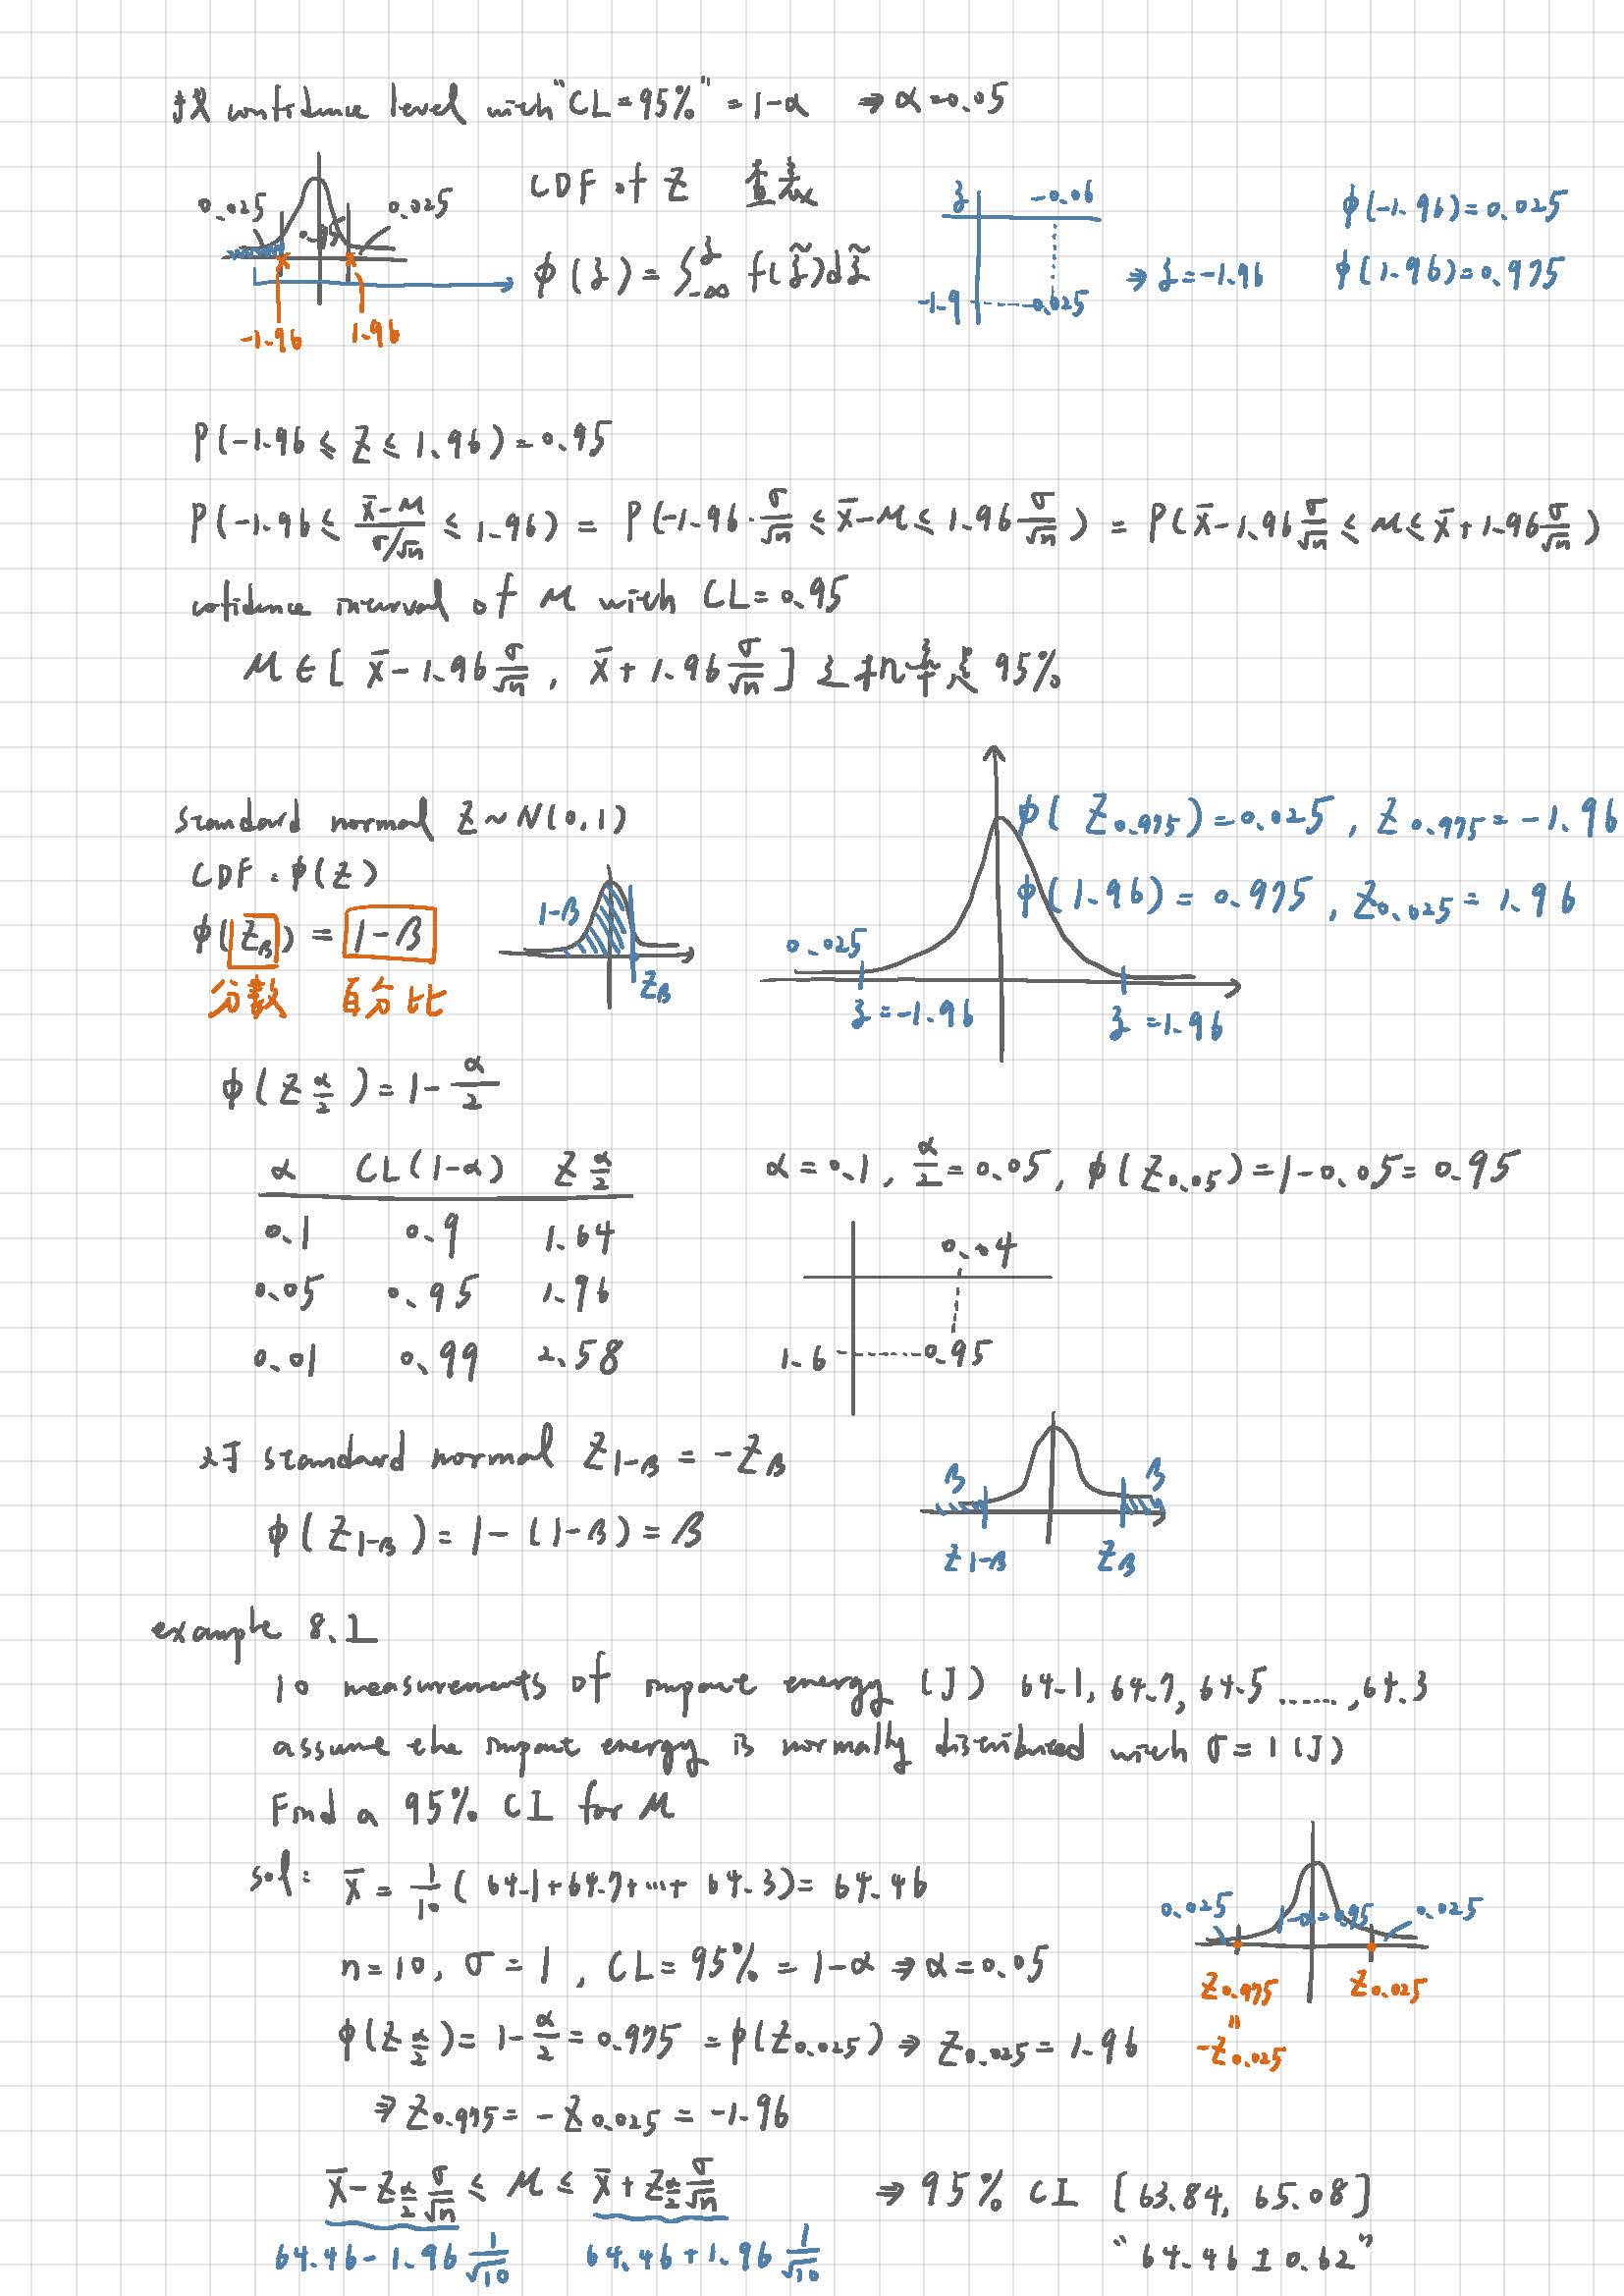 找 confidence level with "CL=95%" = 1-α ⇒ α=0.05
0.025 0.95 0.025
-1.96 1.96
CDF of Z 查表
φ(z) = ∫_{-∞}^{z} f(z̃)dz̃
z -0.06
-1.9 0.025
⇒ z=-1.96
φ(-1.96)=0.025
φ(1.96)=0.975
P(-1.96 ≤ Z ≤ 1.96)=0.95
P(-1.96 ≤ (x̄-μ)/(σ/√n) ≤ 1.96) = P(-1.96·σ/√n ≤ x̄-μ ≤ 1.96 σ/√n) = P(x̄-1.96 σ/√n ≤ μ ≤ x̄+1.96 σ/√n)
cofidence interval of μ with CL=0.95
μ ∈ [x̄-1.96 σ/√n, x̄+1.96 σ/√n] 之机率是 95%
standard normal Z~N(0,1)
CDF: φ(z)
φ(Z_β) = 1-β
分数 百分比
1-β
Z_β
φ(Z_0.975)=0.025, Z_0.975=-1.96
φ(1.96)=0.975, Z_0.025=1.96
0.025
z=-1.96 z=1.96
φ(Z_{α/2})=1-α/2
α CL(1-α) Z_{α/2}
0.1 0.9 1.64
0.05 0.95 1.96
0.01 0.99 2.58
α=0.1, α/2=0.05, φ(Z_0.05)=1-0.05=0.95
0.04
1.6 0.95
对于 standard normal Z_{1-β} = -Z_β
φ(Z_{1-β})=1-(1-β)=β
β β
Z_{1-β} Z_β
example 8.1
10 measurements of impact energy (J) 64.1, 64.7, 64.5 ......, 64.3
assume the impact energy is normally distributed with σ=1(J)
Find a 95% CI for μ
sol: x̄ = 1/10 (64.1+64.7+...+64.3)=64.46
n=10, σ=1, CL=95%=1-α ⇒ α=0.05
φ(Z_{α/2})=1-α/2=0.975=φ(Z_0.025) ⇒ Z_0.025=1.96
⇒ Z_0.975=-Z_0.025=-1.96
0.025 1-α=0.95 0.025
Z_0.975 Z_0.025
=
-Z_0.025
x̄-Z_{α/2} σ/√n ≤ μ ≤ x̄+Z_{α/2} σ/√n ⇒ 95% CI [63.84, 65.08]
64.46-1.96 1/√10 64.46+1.96 1/√10 "64.46±0.62"